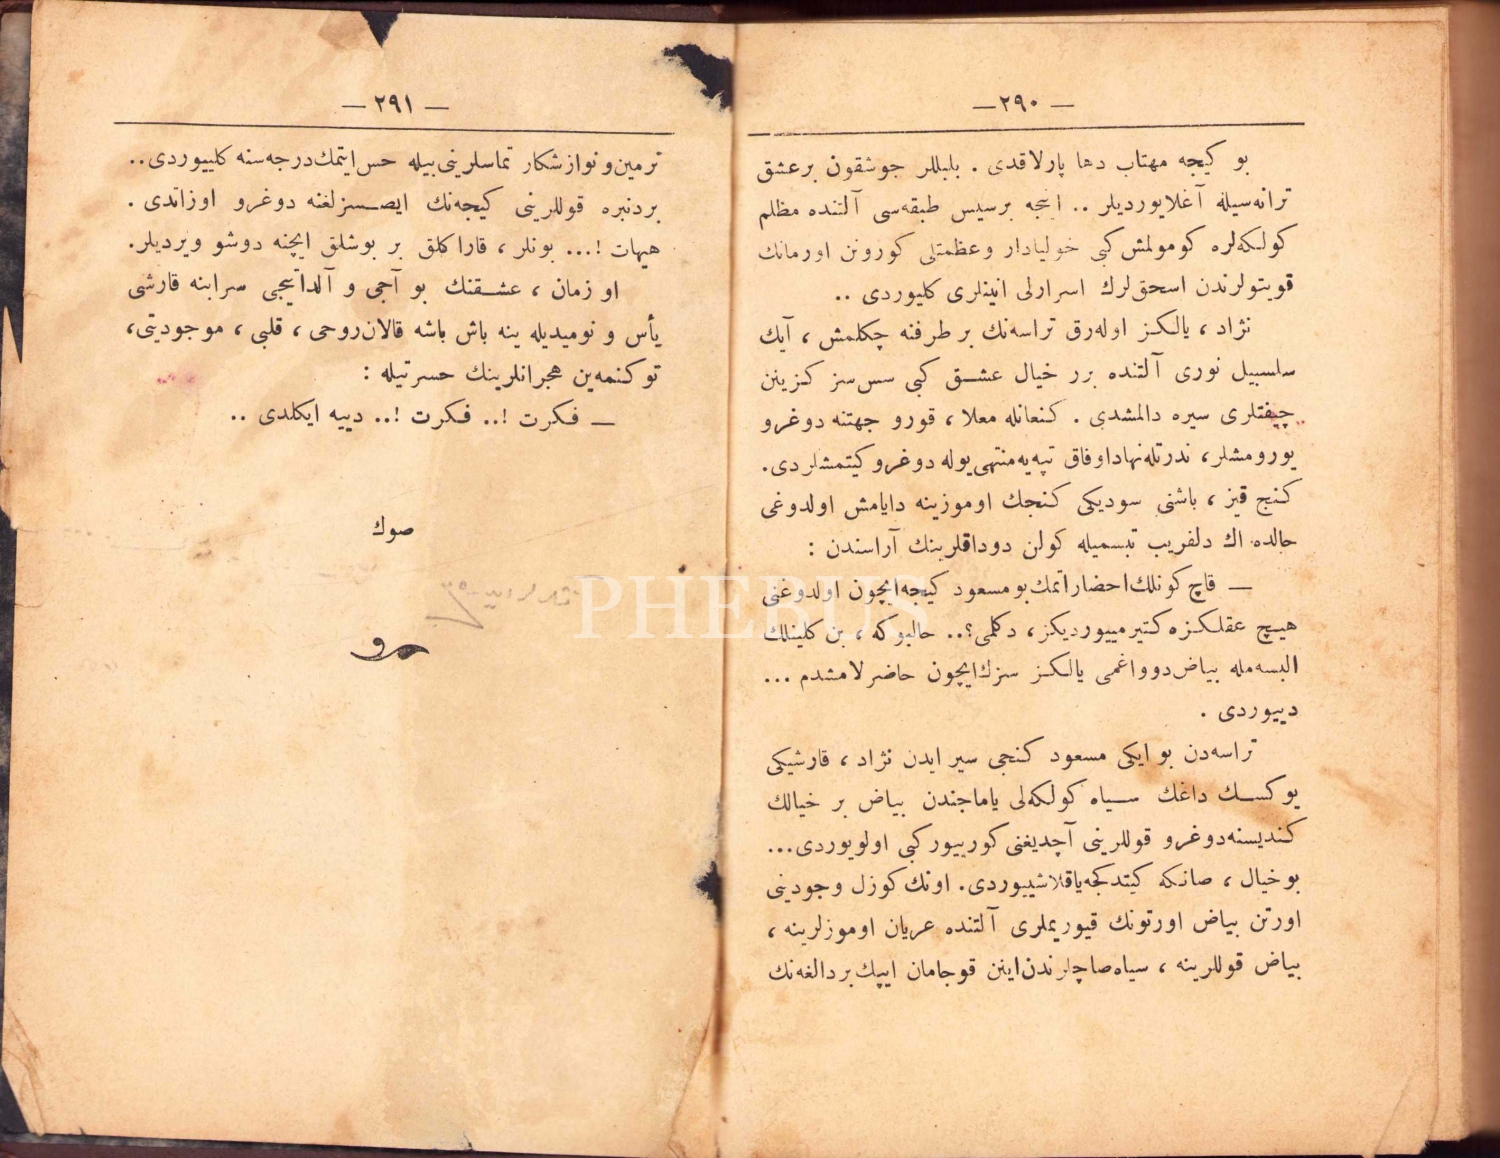 — ٢٩٠ —
بو كیجه مهتاب دها پارلاقدی . بلبللر جوشقون برعشق
ترانه‌سیله آغلایوردیلر .. اینجه برسیس طبقه‌سی آلتنده مظلم
كولكه‌لره كومولمش كبی خولیادار وعظمتلی كورونن اورمانك
قویتولرندن اسحق‌لرك اسرارلی انینلری كلیوردی ..
نژاد ، یالكز اوله‌رق تراسه‌نك بر طرفنه چكلمش ، آیك
سلسبیل نوری آلتنده برر خیال عشق كبی سس‌سز كزینن
چیفتلری سیره دالمشدی . كنعانله معلا ، قورو جهتنه دوغرو
یورومشلر ، ندرتله‌نهاد اوفاق تپه‌یه‌منتهی یوله دوغرو كیتمشلردی.
كنج قیز ، باشنی سودیكی كنجك اوموزینه دایامش اولدوغی
حالده اك دلفریب تبسمیله كولن دوداقلرینك آراسندن :
— قاچ كونلك‌احضاراتمك‌بو مسعود كیجه‌ایچون اولدوغنی
هیچ عقلكزه كتیرمییوردیكز ، دكلمی؟.. حالبوكه ، بن كلینلك
البسه‌مله بیاض دوواغمی یالكز سزك‌ایچون حاضرلامشدم ...
دییوردی .
تراسه‌دن بو ایكی مسعود كنجی سیر ایدن نژاد ، قارشیكی
یوكسك داغك سیاه كولكه‌لی یاماجندن بیاض بر خیالك
كندیسنه‌دوغرو قوللرینی آچدیغنی كورییور كبی اولویوردی...
بوخیال ، صانكه كیتدكجه‌یاقلاشییوردی. اونك كوزل وجودینی
اورتن بیاض اورتونك قیوریملری آلتنده عریان اوموزلرینه ،
بیاض قوللرینه ، سیاه‌صاچلرندن‌اینن قوجامان ایپك بردالغه‌نك
— ٢٩١ —
ترمین‌و نوازشكار تماسلرینی‌بیله حس ایتمك‌درجه‌سنه كلییوردی..
بردنبره قوللرینی كیجه‌نك ایصسزلغنه دوغرو اوزاتدی .
هیهات !... بونلر ، قاراكلق بر بوشلق ایچنه دوشو ویردیلر.
او زمان ، عشقنك بو آجی و آلداتیجی سرابنه قارشی
یأس و نومیدیله ینه باش باشه قالان‌روحی ، قلبی ، موجودیتی ،
توكنمه‌ین هجرانلرینك حسرتیله :
— فكرت !.. فكرت !.. دییه ایكلدی ..
صوك
PHEBUS